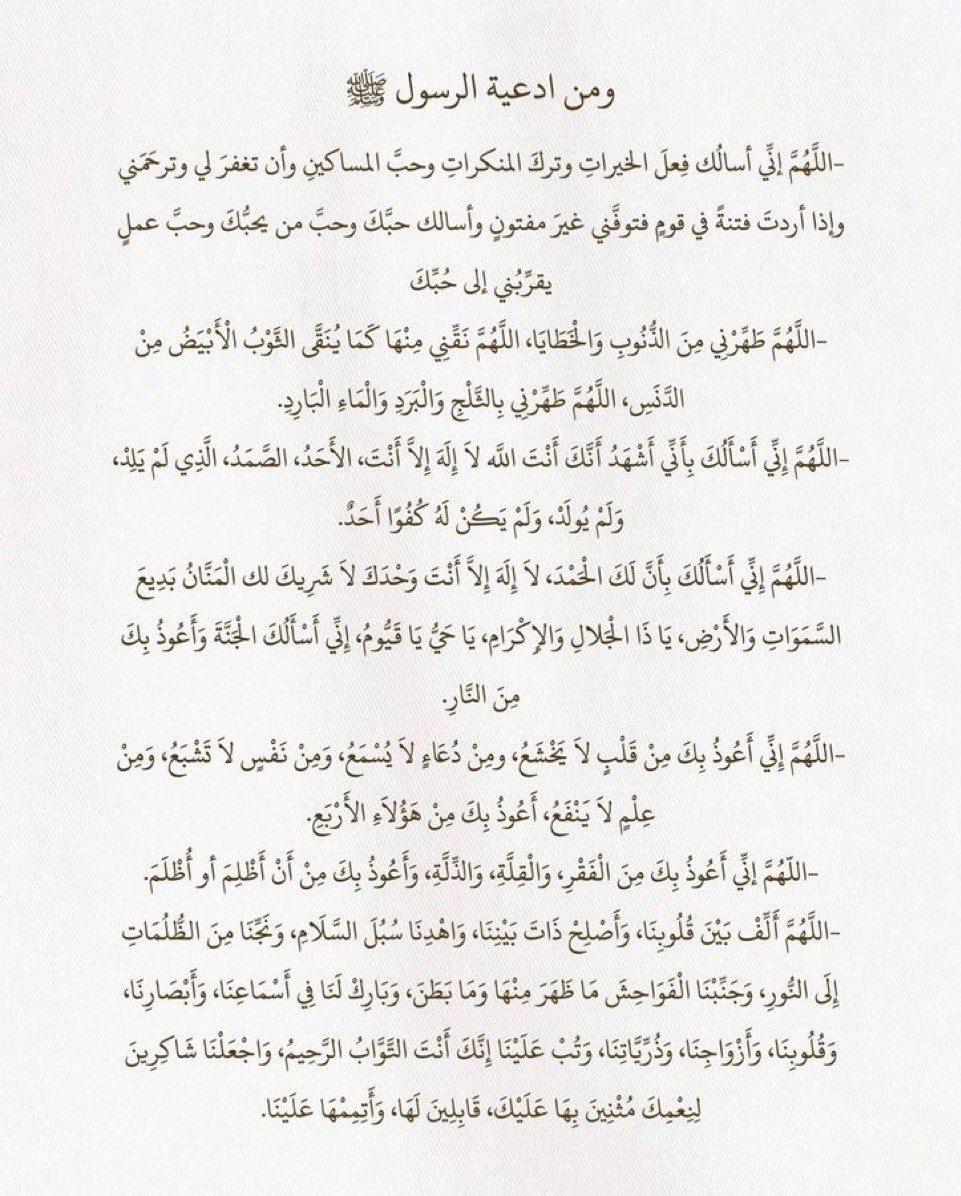 ومن ادعية الرسول ﷺ
-اللَّهُمَّ إنِّي أسالُك فِعلَ الخيراتِ وتركَ المنكراتِ وحبَّ المساكينِ وأن تغفرَ لي وترحَمَني
وإذا أردتَ فتنةً في قومٍ فتوفَّني غيرَ مفتونٍ وأسالك حبَّكَ وحبَّ من يحبُّكَ وحبَّ عملٍ
يقرِّبُني إلى حُبِّكَ
-اللَّهُمَّ طَهِّرْنِي مِنَ الذُّنُوبِ وَالْخَطَايَا، اللَّهُمَّ نَقِّنِي مِنْهَا كَمَا يُنَقَّى الثَّوْبُ الْأَبْيَضُ مِنْ
الدَّنَسِ، اللَّهُمَّ طَهِّرْنِي بِالثَّلْجِ وَالْبَرَدِ وَالْمَاءِ الْبَارِدِ.
-اللَّهُمَّ إِنِّي أَسْأَلُكَ بِأَنِّي أَشْهَدُ أَنَّكَ أَنْتَ اللَّه لاَ إِلَهَ إِلاَّ أَنْتَ، الأَحَدُ، الصَّمَدُ، الَّذِي لَمْ يَلِدْ،
وَلَمْ يُولَدْ، وَلَمْ يَكُنْ لَهُ كُفُوًا أَحَدٌ.
-اللَّهُمَّ إِنِّي أَسْأَلُكَ بِأَنَّ لَكَ الْحَمْدَ، لاَ إِلَهَ إِلاَّ أَنْتَ وَحْدَكَ لاَ شَرِيكَ لك الْمَنَّانُ بَدِيعَ
السَّمَوَاتِ وَالأَرْضِ، يَا ذَا الْجَلالِ وَالإِكْرَامِ، يَا حَيُّ يَا قَيُّومُ، إِنِّي أَسْأَلُكَ الْجَنَّةَ وَأَعُوذُ بِكَ
مِنَ النَّارِ.
-اللَّهُمَّ إِنِّي أَعُوذُ بِكَ مِنْ قَلْبٍ لاَ يَخْشَعُ، ومِنْ دُعَاءٍ لاَ يُسْمَعُ، وَمِنْ نَفْسٍ لاَ تَشْبَعُ، وَمِنْ
عِلْمٍ لاَ يَنْفَعُ، أَعُوذُ بِكَ مِنْ هَؤُلاَءِ الأَرْبَعِ.
-اللّهُمَّ إنِّي أَعُوذُ بِكَ مِنَ الْفَقْرِ، وَالْقِلَّةِ، وَالذِّلَّةِ، وَأَعُوذُ بِكَ مِنْ أَنْ أَظْلِمَ أو أُظْلَمَ.
-اللَّهُمَّ أَلِّفْ بَيْنَ قُلُوبِنَا، وَأَصْلِحْ ذَاتَ بَيْنِنَا، وَاهْدِنَا سُبُلَ السَّلَامِ، وَنَجِّنَا مِنَ الظُّلُمَاتِ
إِلَى النُّورِ، وَجَنِّبْنَا الْفَوَاحِشَ مَا ظَهَرَ مِنْهَا وَمَا بَطَنَ، وَبَارِكْ لَنَا فِي أَسْمَاعِنَا، وَأَبْصَارِنَا،
وَقُلُوبِنَا، وَأَزْوَاجِنَا، وَذُرِّيَّاتِنَا، وَتُبْ عَلَيْنَا إِنَّكَ أَنْتَ التَّوَّابُ الرَّحِيمُ، وَاجْعَلْنَا شَاكِرِينَ
لِنِعْمِكَ مُثْنِينَ بِهَا عَلَيْكَ، قَابِلِينَ لَهَا، وَأَتِمِمْهَا عَلَيْنَا.